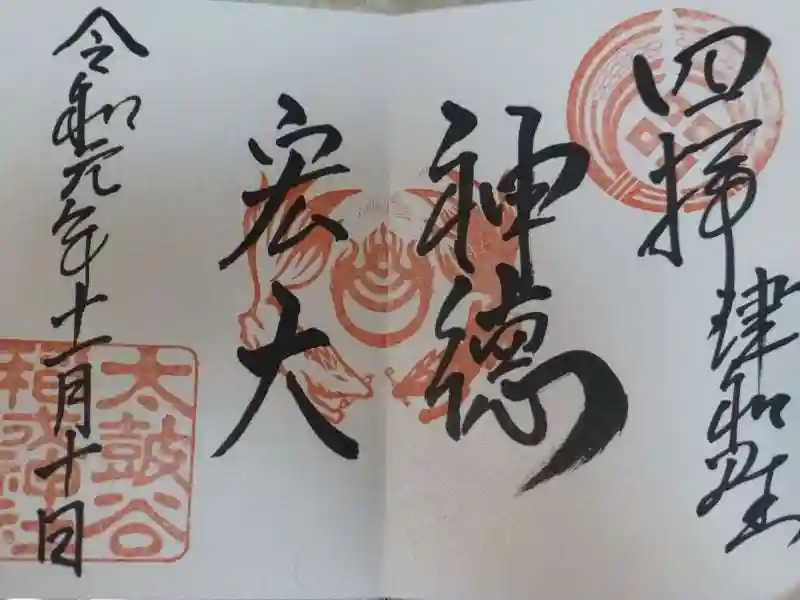 四拝
津和野坐
神徳
宏大
令和元年十一月十日
太鼓谷
稲成神社